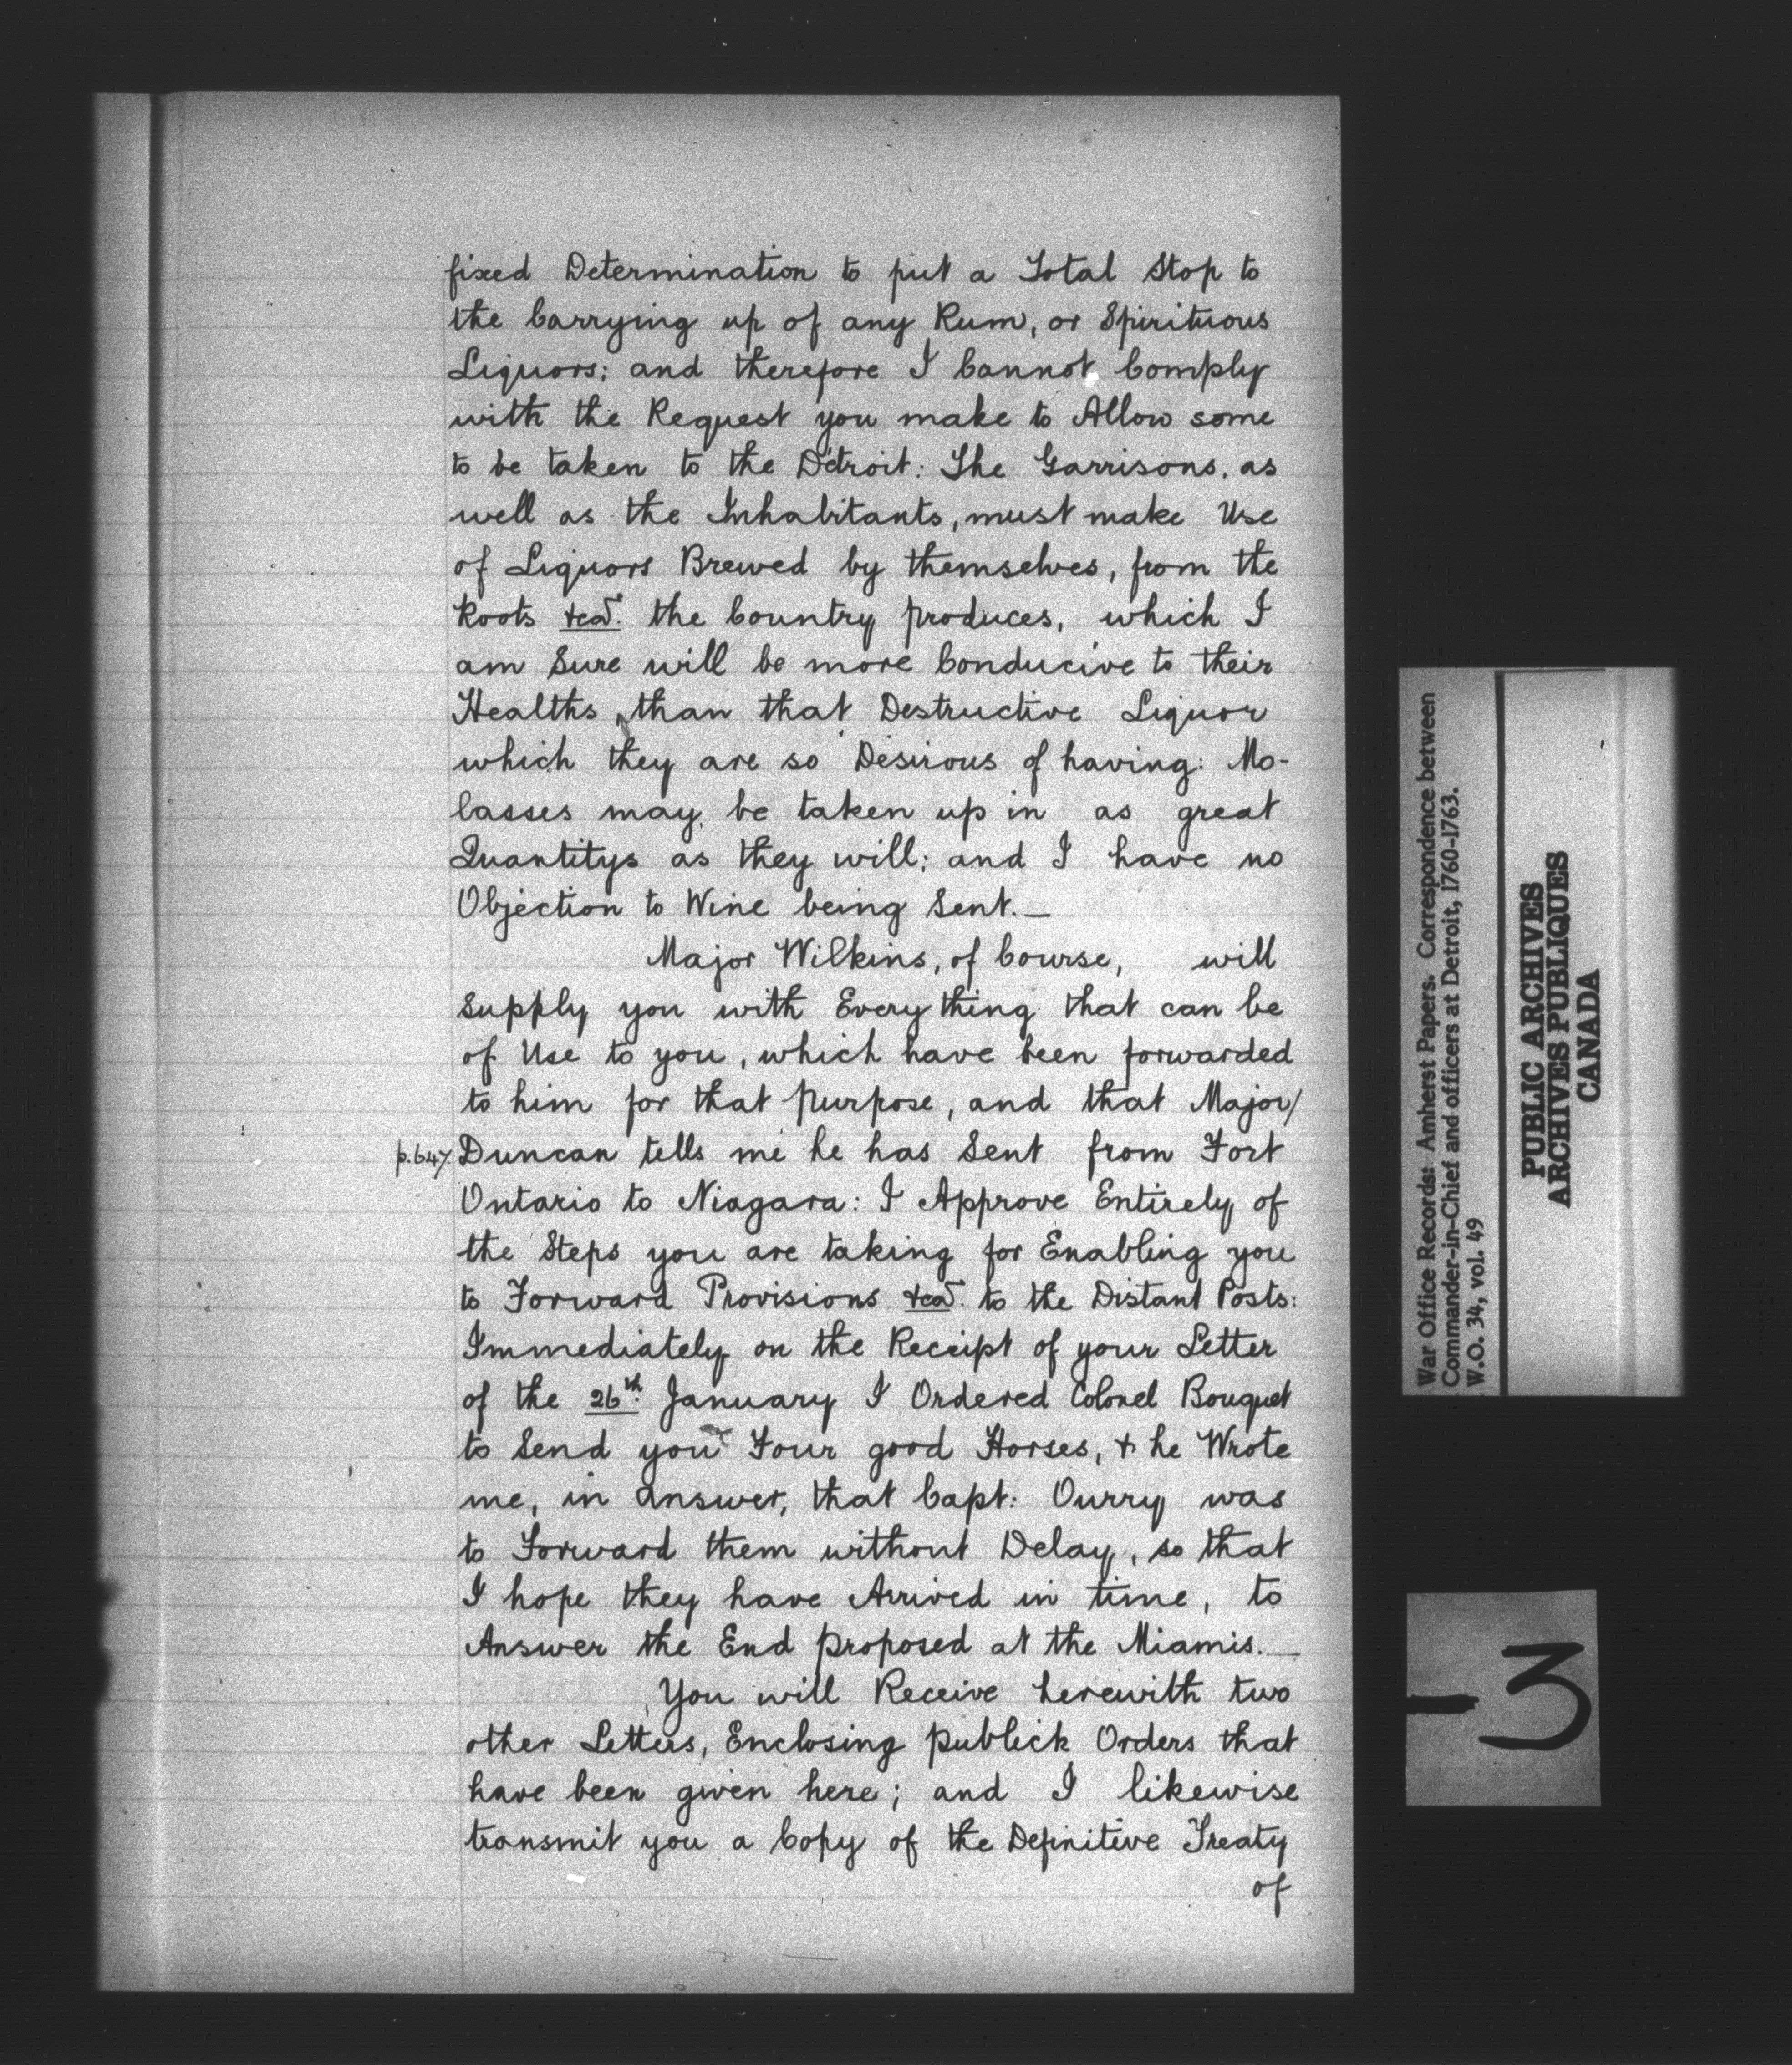 fixed Determination to put a Total Stop to
the Carrying up of any Rum, or Spirituous
Liquors; and therefore I Cannot Comply
with the Request you make to Allow some
to be taken to the Detroit: The Garrisons, as
well as the Inhabitants, must make Use
of Liquors Brewed by themselves, from the
Roots &ca. the Country produces, which I
am Sure will be more Conducive to their
Healths, than that Destructive Liquor
which they are so Desirous of having: Mo-
lasses may be taken up in as great
Quantitys as they will; and I have no
Objection to Wine being Sent.—
Major Wilkins, of Course, will
Supply you with Every thing that can be
of Use to you, which have been forwarded
to him for that purpose, and that Major/
p.647. Duncan tells me he has Sent from Fort
Ontario to Niagara: I Approve Entirely of
the Steps you are taking for Enabling you
to Forward Provisions &ca. to the Distant Posts:
Immediately on the Receipt of your Letter
of the 26th. January I Ordered Colonel Bouquet
to Send you Four good Horses, & he Wrote
me, in answer, that Capt: Ourry was
to Forward them without Delay, so that
I hope they have Arrived in time, to
Answer the End proposed at the Miamis.—
You will Receive herewith two
other Letters, Enclosing publick Orders that
have been given here; and I likewise
transmit you a Copy of the Definitive Treaty
of
War Office Records: Amherst Papers. Correspondence between
Commander-in-Chief and officers at Detroit, 1760-1763.
W.O. 34, vol. 49
PUBLIC ARCHIVES
ARCHIVES PUBLIQUES
CANADA
-3